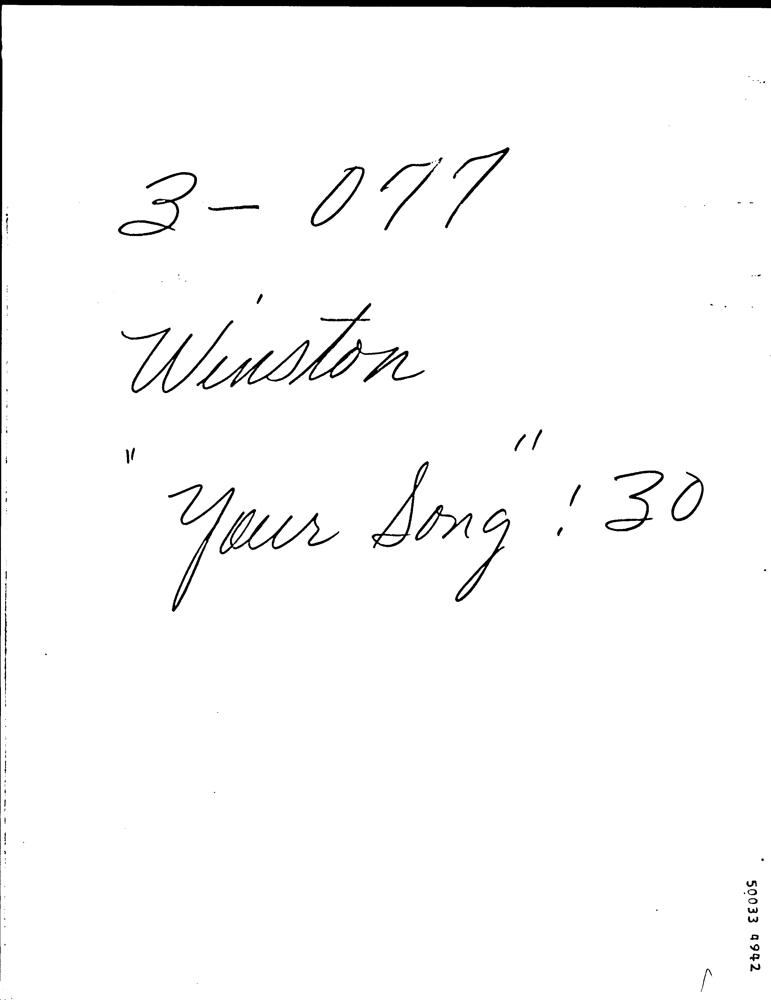 3- 077
Winston
"Your Song" :30
50033 4942